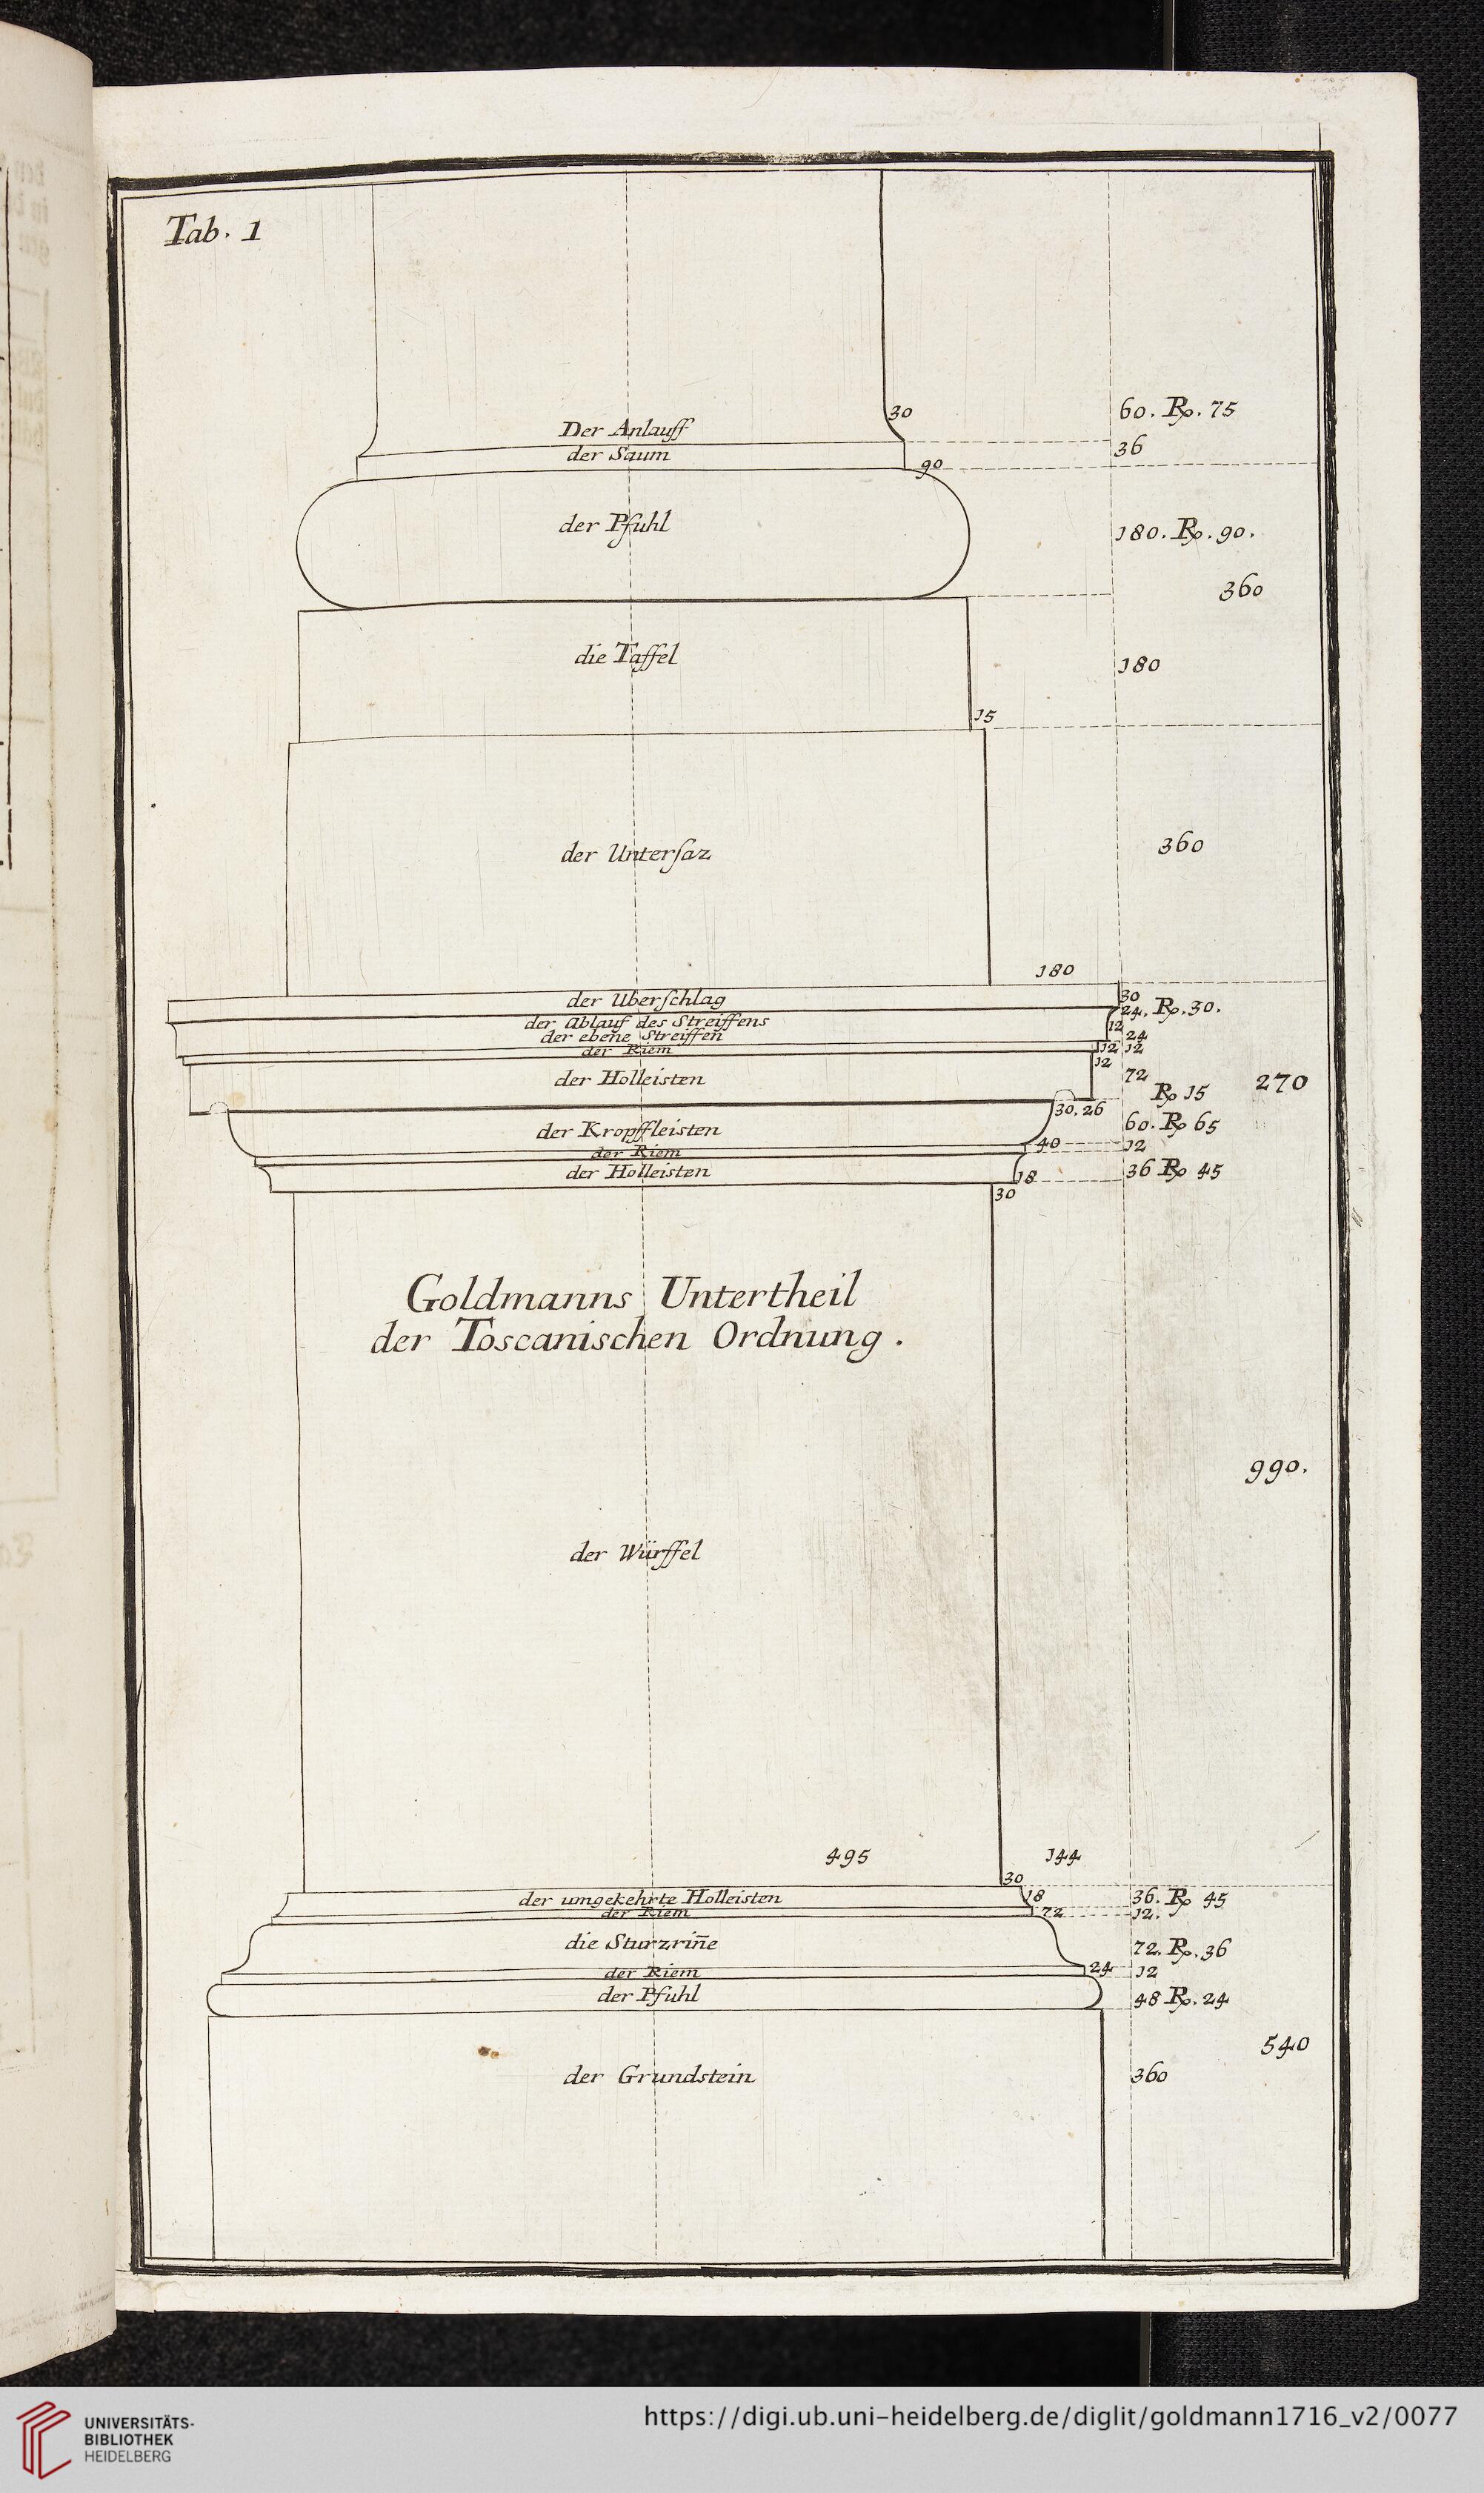 Tab. 1
30
60. R. 75
Der Anlauff
der Saum
36
90
der Pfuhl
180. R. 90.
360
die Taffel
180
15
der Unterſaz
360
180
der Uberſchlag
30
24. R. 30.
der Ablauf des Streiffens
12
der ebene Streiffen
24
der Riem
12 12
12
der Holleisten
72
R 15
270
30. 26
der Kropffleisten
60. R 65
der Riem
40
12
der Holleisten
18
36 R 45
30
Goldmanns Untertheil
der Toscanischen Ordnung.
990.
der Würffel
495
144
30
der umgekehrte Holleisten
18
36. R 45
der Riem
72
12.
die Sturzrin̄e
72. R. 36
der Riem
24
12
der Pfuhl
48 R. 24
540
der Grundstein
360
UNIVERSITÄTS-
BIBLIOTHEK
HEIDELBERG
https://digi.ub.uni-heidelberg.de/diglit/goldmann1716_v2/0077